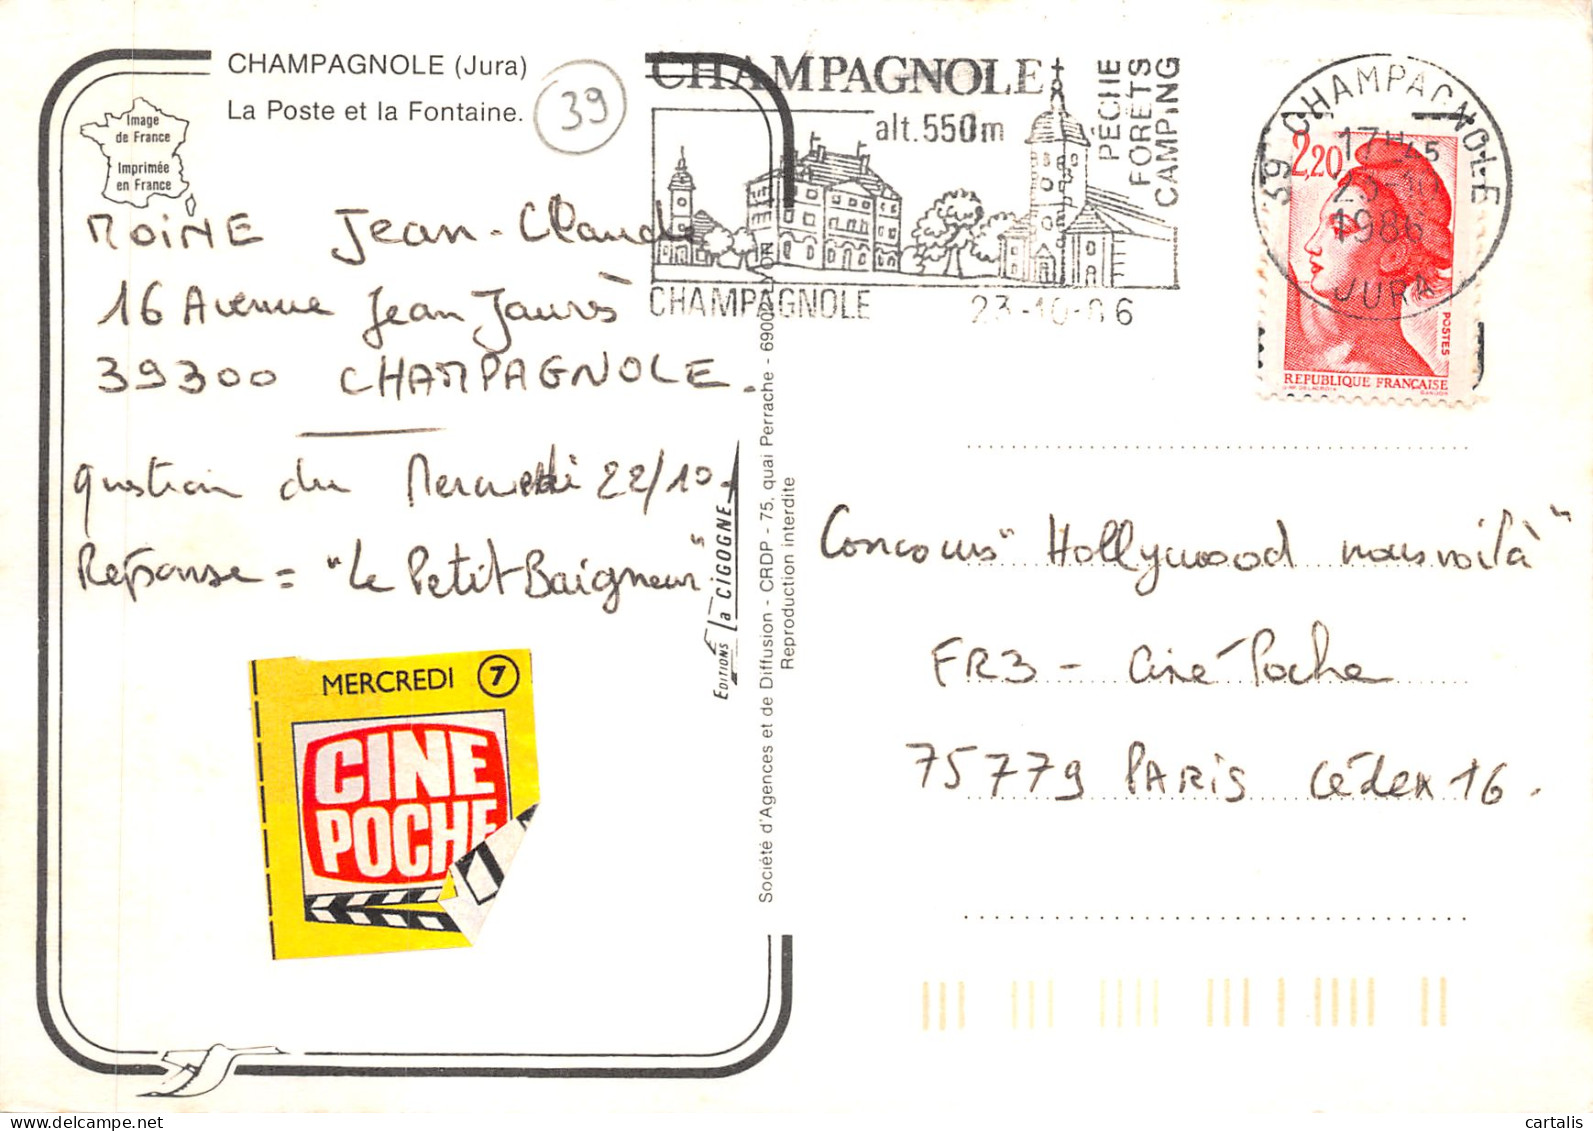 CHAMPAGNOLE (Jura)
La Poste et la Fontaine.
39
Image
de France
Imprimée
en France
MOINE Jean-Claude
16 Avenue Jean Jaurès
39300 CHAMPAGNOLE.
question du Mercredi 22/10.
Réponse = "Le Petit Baigneur"
MERCREDI 7
CINE
POCHE
CHAMPAGNOLE
alt. 550m
PÉCHE
FORETS
CAMPING
CHAMPAGNOLE 23-10-86
EDITIONS La CIGOGNE
Société d'Agences et de Diffusion - CRDP - 75, quai Perrache - 69002 LYON
Reproduction interdite
39 CHAMPAGNOLE
17H45
23-10
1986
JURA
2,20
POSTES
REPUBLIQUE FRANÇAISE
GANDON
Concours "Hollywood nous voilà"
FR3 - Ciné Poche
75779 PARIS Cédex 16.
cartalis